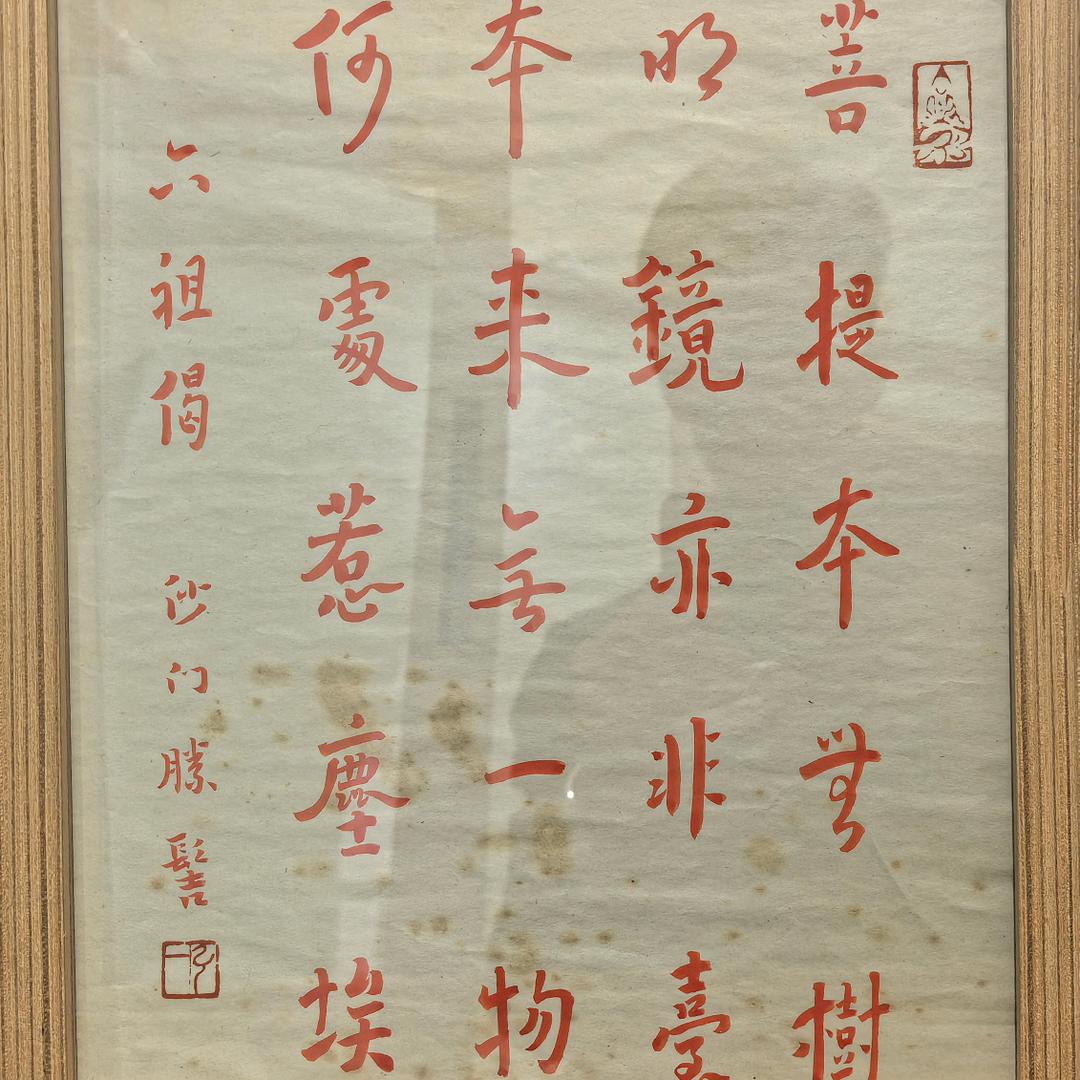 菩提本無樹
明鏡亦非臺
本来无一物
何處惹塵埃
六祖偈 沙门勝髻
弘一